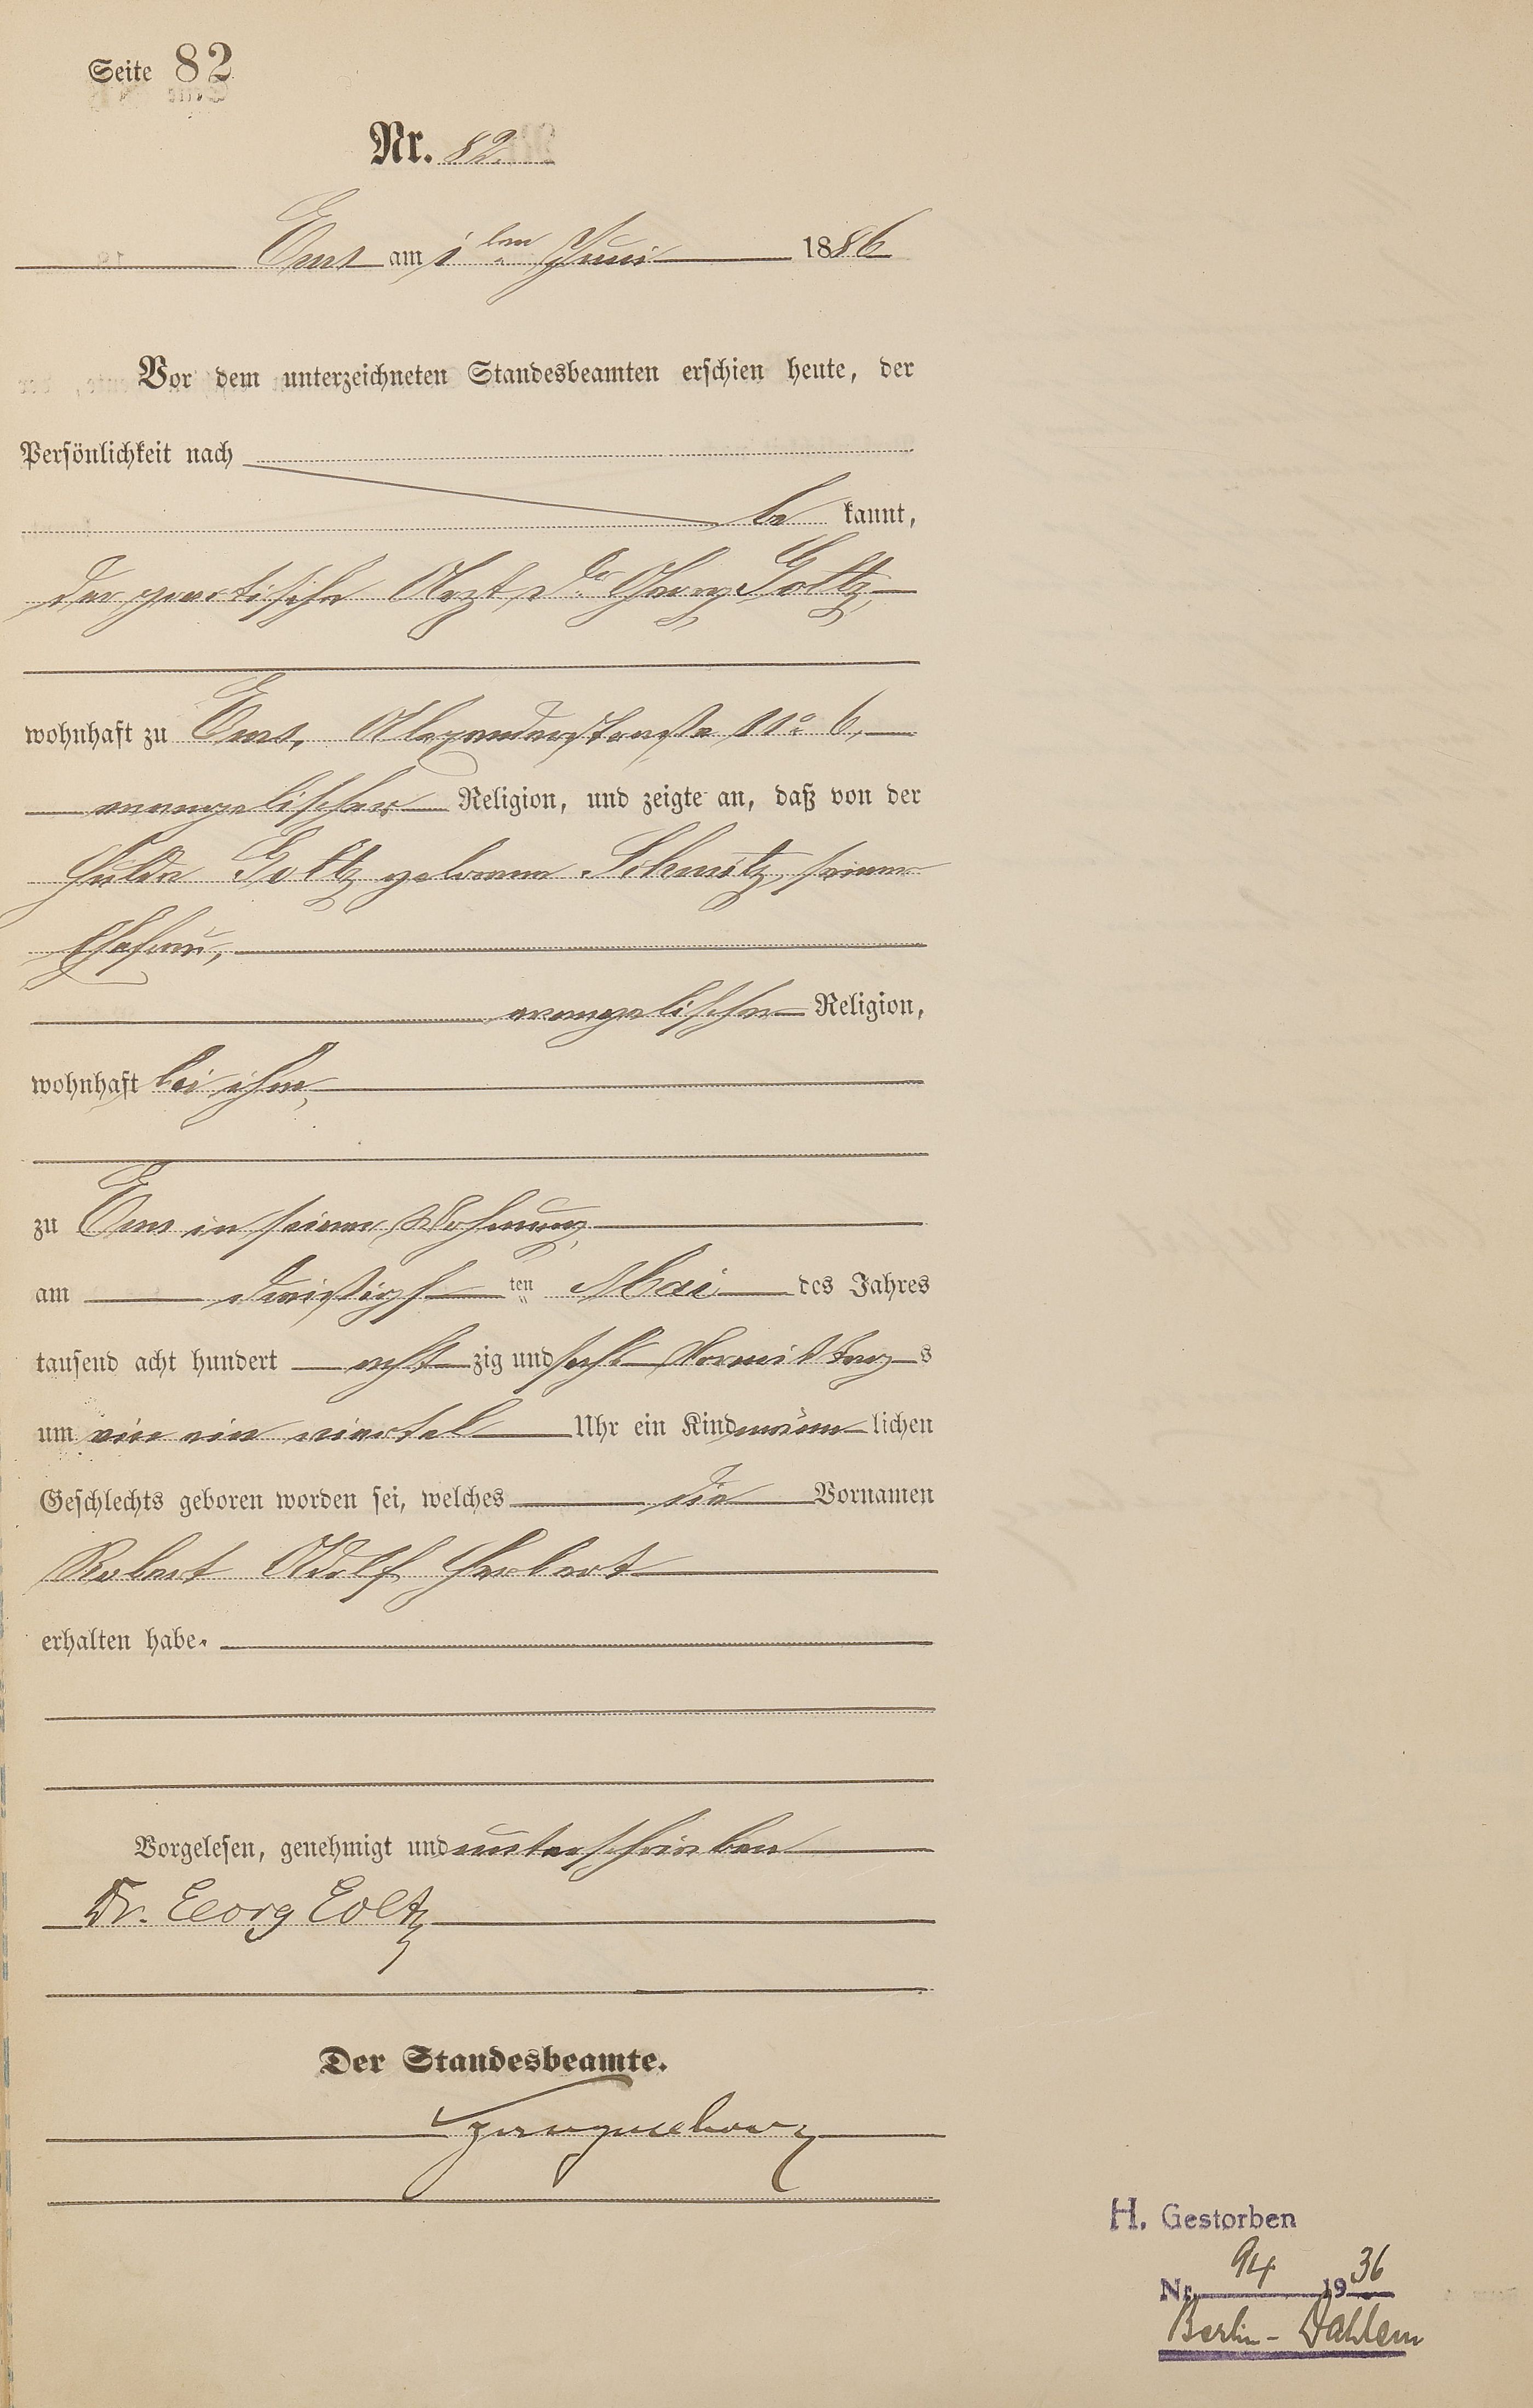 Seite 82
Nr. 82.
Ems am 1ten Juni 1886
Vor dem unterzeichneten Standesbeamten erschien heute, der
Persönlichkeit nach
be kannt,
der practische Arzt Dr. Georg Goltz,
wohnhaft zu Ems, Alexanderstraße No 6,
evangelischer Religion, und zeigte an, daß von der
Hulda Goltz geborenen Schmitz, seiner
Ehefrau,
evangelischer Religion,
wohnhaft bei ihm,
zu Ems in seiner Wohnung,
am dreißigst ten Mai des Jahres
tausend acht hundert acht zig und sechs Vormittag s
um ein ein viertel Uhr ein Kind männ lichen
Geschlechts geboren worden sei, welches die Vornamen
Robert Adolf Herbert
erhalten habe.
Vorgelesen, genehmigt und unterschrieben
Dr. Georg Goltz
Der Standesbeamte.
H. Gestorben
Nr. 94 1936
Berlin-Dahlem